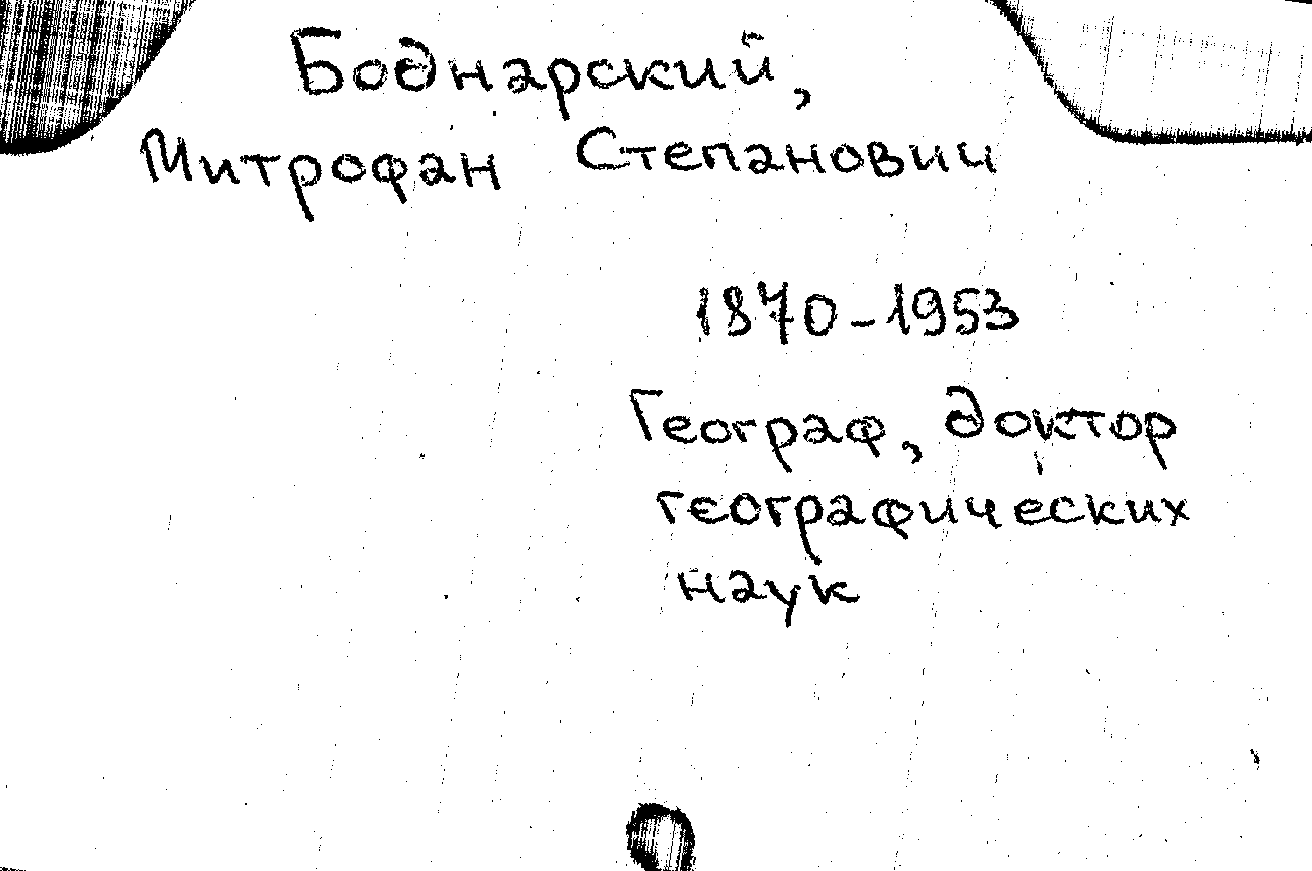 Боднарский,
Митрофан Степанович
1870-1953
Географ, доктор
географических
наук